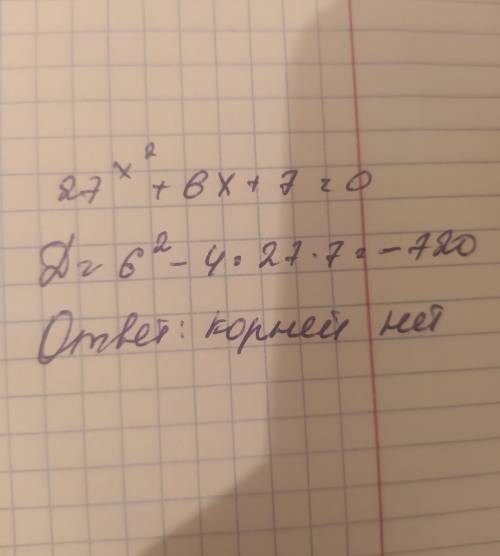 27^x^2 + 6x + 7 = 0
D = 6² - 4 · 27 · 7 = -720
Ответ: корней нет